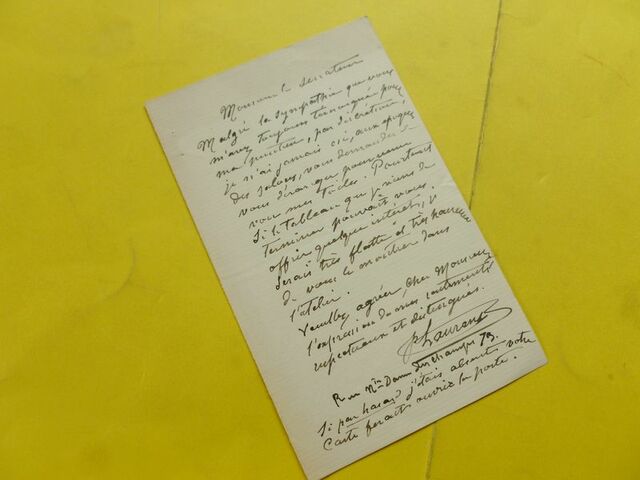 Monsieur le Senateur
Malgré la sympathie que vous
m'avez toujours témoignée pour
ma peinture, par discrétion,
je n'ai jamais osé, aux époques
des salons, vous demander
vous déranger pour venir
voir mes toiles. Pourtant
Si le tableau que je viens de
terminer pouvait vous
offrir quelque intérêt, je
serais très flatté et très heureux
de vous le montrer dans
l'atelier.
Veuillez agréer, cher Monsieur
l'expression de mes sentiments
respectueux et distingués.
Laurens
Rue Nre Dame des champs 73.
Si par hasard j'étais absent votre
Carte ferait ouvrir la porte.